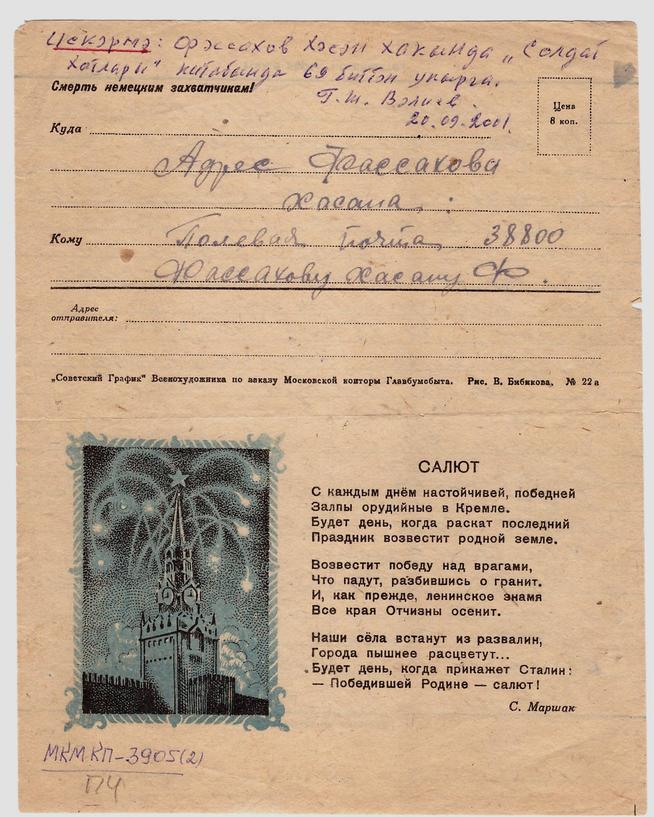 Искәрмә: Фәссахов Хәсән хакында „Солдат
хатлары" китабында 69 биттән укырга.
Г.Ш. Вәлиев.
20.09.2001.
Смерть немецким захватчикам!
Цена
8 коп.
Куда
Адрес Фассахова
Хасана.
Кому Полевая почта 38800
Фассахову Хасану Ф.
Адрес
отправителя:
„Советский График" Всекохудожника по заказу Московской конторы Главбумсбыта. Рис. В. Бибикова. № 22а
САЛЮТ
С каждым днём настойчивей, победней
Залпы орудийные в Кремле.
Будет день, когда раскат последний
Праздник возвестит родной земле.
Возвестит победу над врагами,
Что падут, разбившись о гранит.
И, как прежде, ленинское знамя
Все края Отчизны осенит.
Наши сёла встанут из развалин,
Города пышнее расцветут...
Будет день, когда прикажет Сталин:
— Победившей Родине — салют!
С. Маршак
МКМ КП-3905(2)
ПЧ